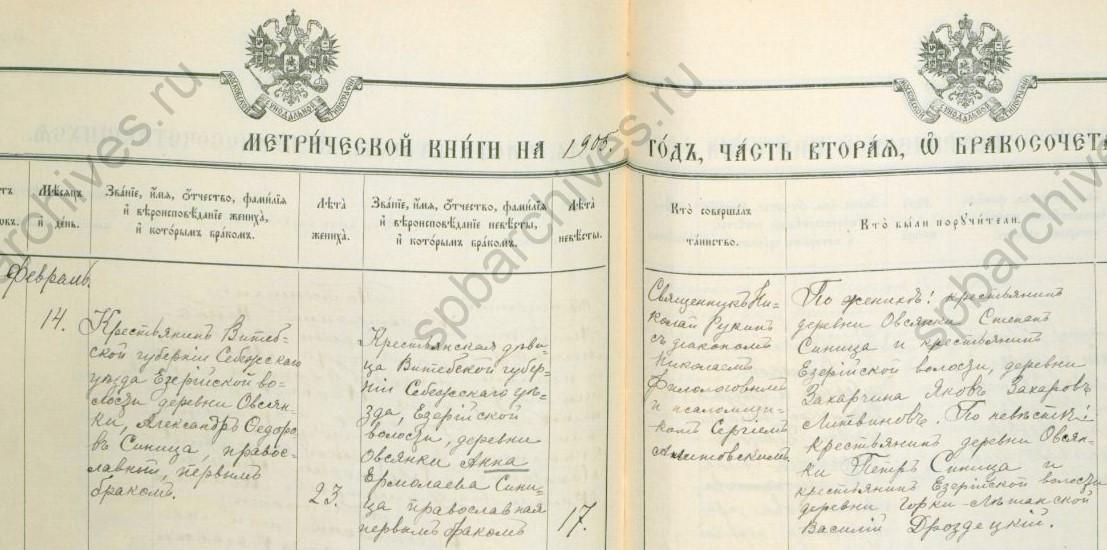 МОСКОВСКОЙ СИНОДАЛЬНОЙ ТИПОГРАФІИ
МОСКОВСКОЙ СИНОДАЛЬНОЙ ТИПОГРАФІИ
МЕТРИ́ЧЕСКОЙ КНИ́ГИ НА 1905 ГО́ДЪ, ЧА́СТЬ ВТОРА́Я, Ѽ БРАКОСОЧЕТА
Мѣ́сяцъ
и҆ де́нь.
Зва́нїе, и҆́мя, ѻ҆́тчество, фами́лїя
и҆ вѣроисповѣ́данїе жениха̀,
и҆ кото́рымъ бра́комъ.
Лѣ́та
жениха̀.
Зва́нїе, и҆́мя, ѻ҆́тчество, фами́лїя
и҆ вѣроисповѣ́данїе невѣ́сты,
и҆ кото́рымъ бра́комъ.
Лѣ́та
невѣ́сты.
Кто̀ соверша́лъ
та́инство.
Кто̀ бы́ли порꙋчи́тели.
Февраль.
14.
Крестьянинъ Витеб-
ской губерніи Себежскаго
уѣзда Езерійской во-
лости деревни Овсян-
ки, Александръ Ѳедоро-
въ Синица, право-
славный, первымъ
бракомъ.
23.
Крестьянская дѣви-
ца Витебской губер-
ніи Себежскаго уѣ-
зда, Езерійской
волости, деревни
Овсянки Анна
Ермолаева Сини-
ца православная
первымъ бракомъ
17.
Священникъ Ни-
колай Рукинъ
съ діакономъ
Николаемъ
Филологовымъ
и псаломщи-
комъ Сергіемъ
По женихѣ: крестьянинъ
деревни Овсянки Степанъ
Синица и крестьянинъ
Езерійской волости, деревни
Захарчина Яковъ Захаровъ
Литвиновъ. По невѣстѣ:
крестьянинъ деревни Овсян-
ки Петръ Синица и
крестьянинъ Езерійской волости
деревни Горки-
Василій Дроздецкій.
spbarchives.ru
spbarchives.ru
spbarchives.ru